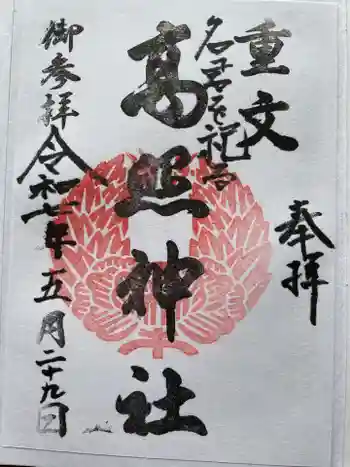 奉拝
重文
名君を祀る
高照神社
令和七年五月二十九日
御参拝